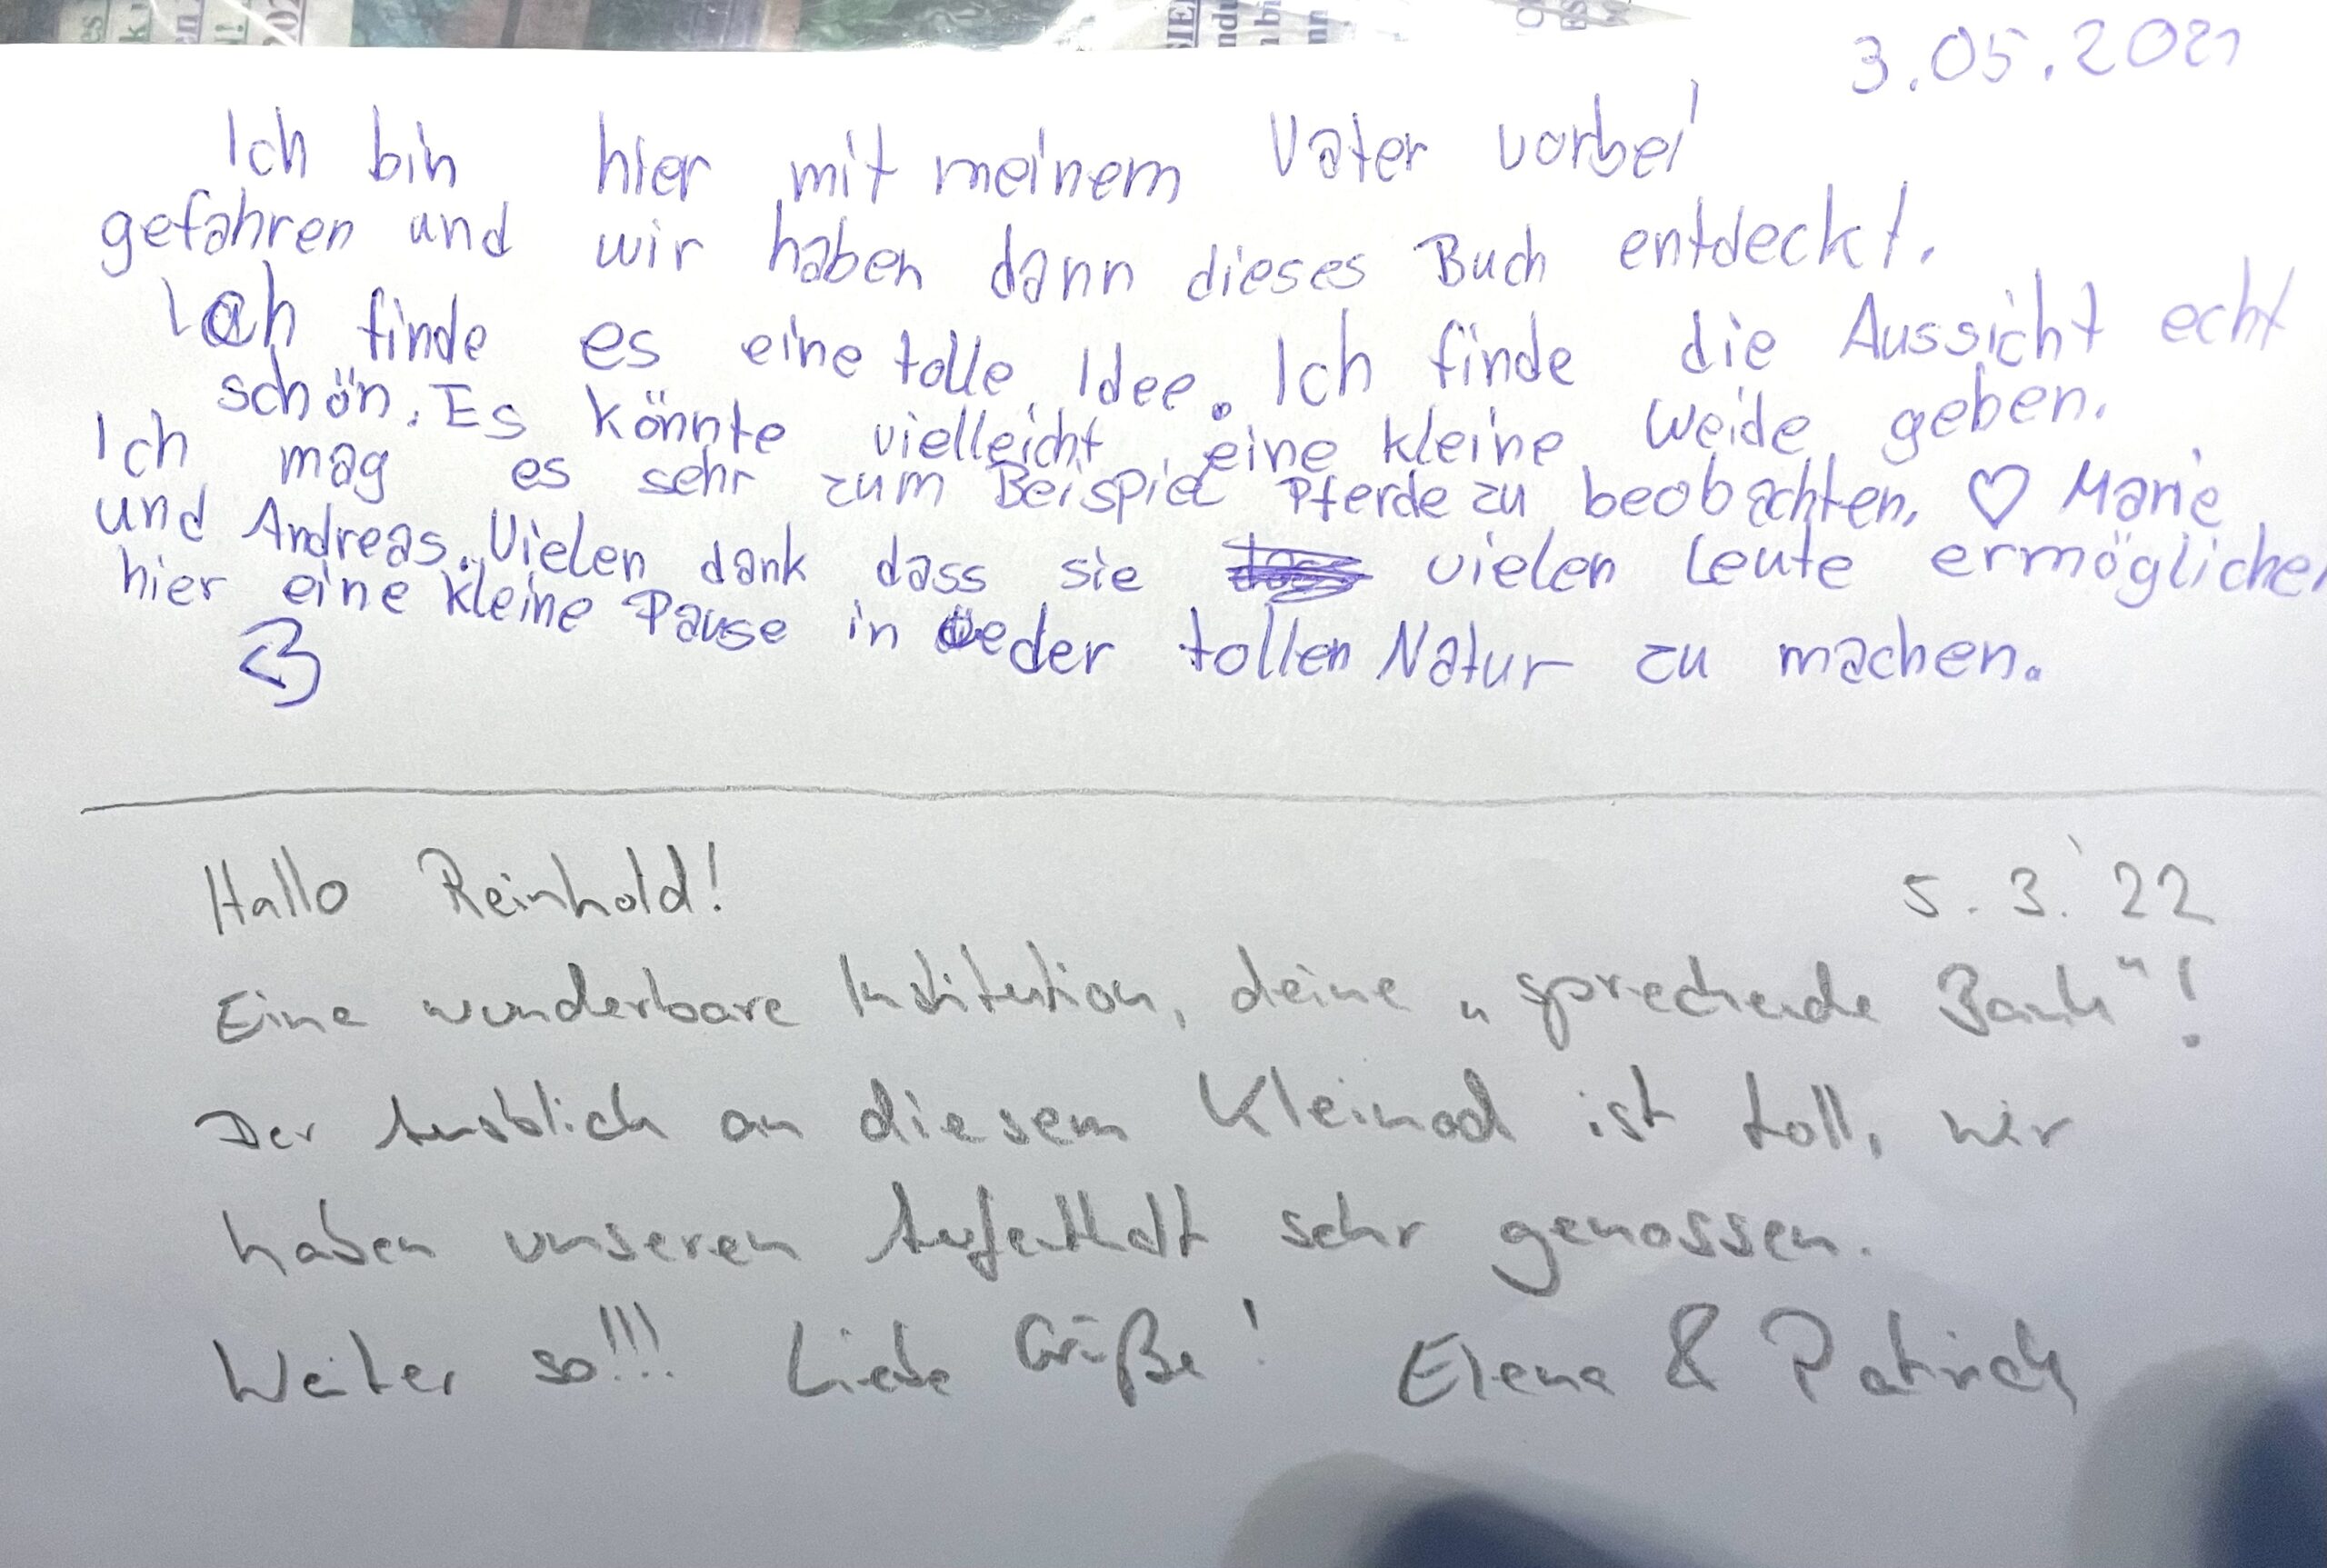 3.05.2021
Ich bin hier mit meinem Vater vorbei
gefahren und wir haben dann dieses Buch entdeckt.
Ich finde es eine tolle Idee. Ich finde die Aussicht echt
schön. Es könnte vielleicht eine kleine Weide geben.
Ich mag es sehr zum Beispiel Pferde zu beobachten. ♡ Marie
und Andreas. Vielen dank dass sie vielen Leute ermöglichen
hier eine kleine Pause in der tollen Natur zu machen.
<3
Hallo Reinhold! 5.3.'22
Eine wunderbare Institution, deine „sprechende Bank"!
Der Ausblick an diesem Kleinod ist toll, wir
haben unseren Aufenthalt sehr genossen.
Weiter so!!! Liebe Grüße! Elena & Patrick